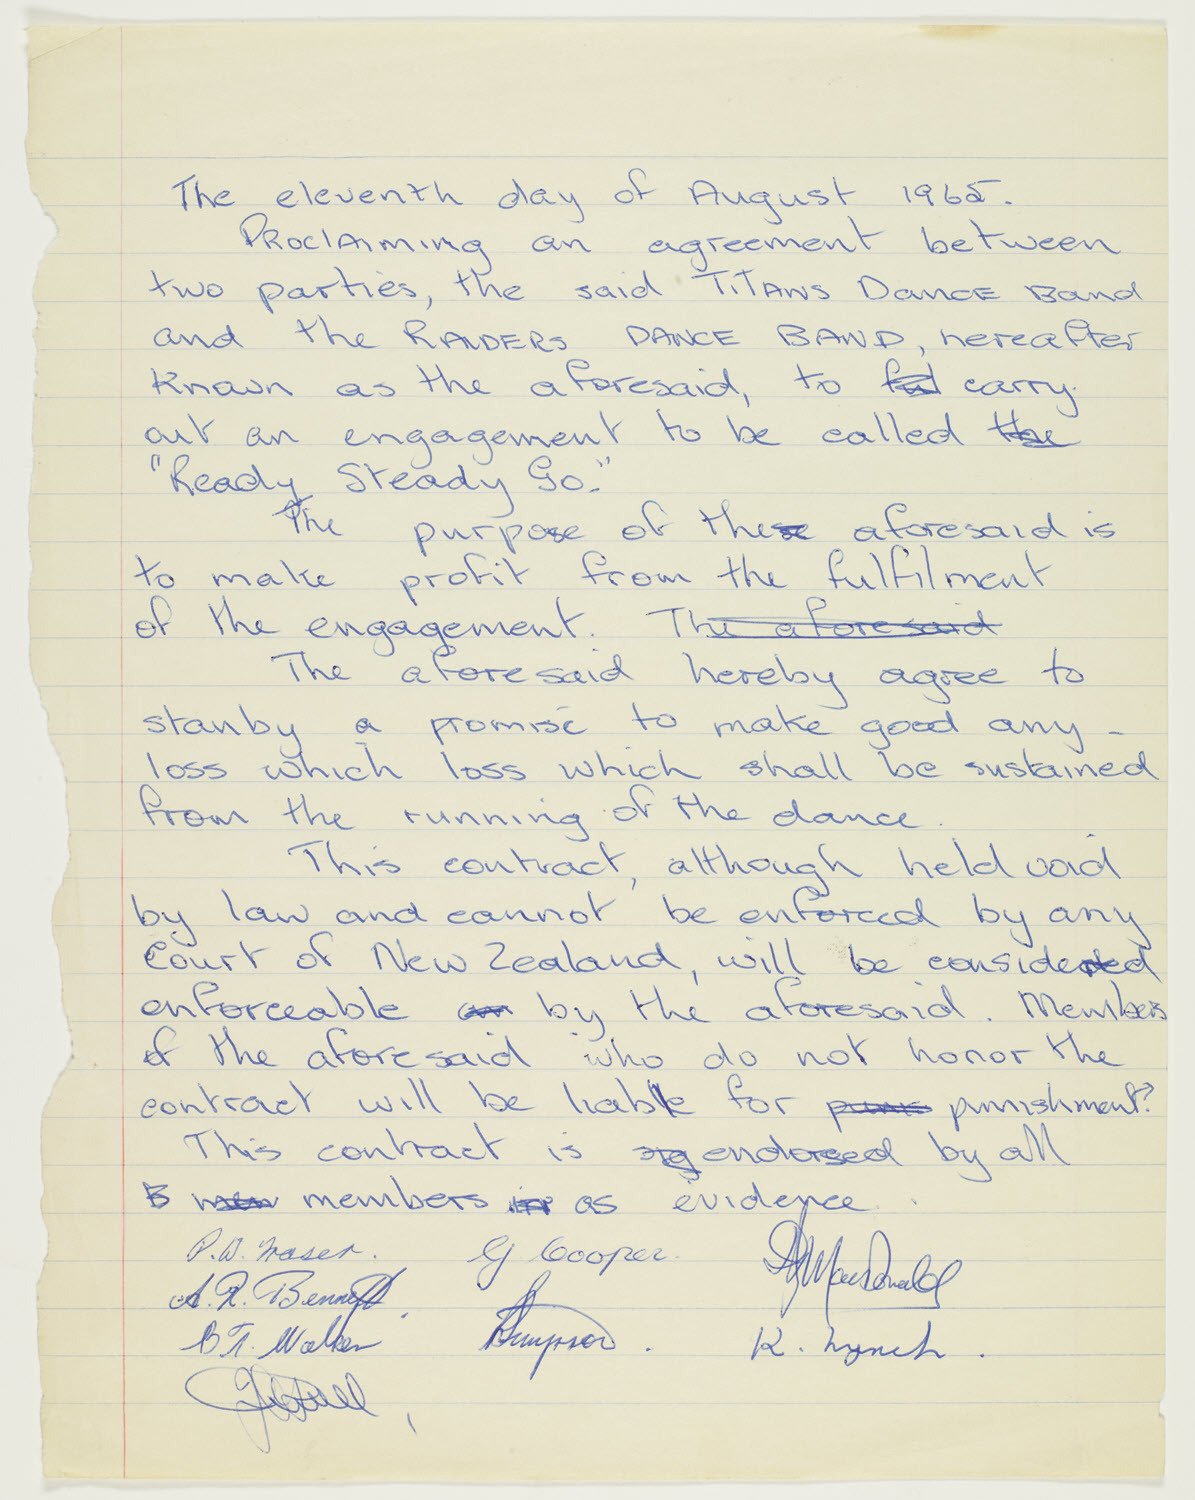 The eleventh day of August 1965.
Proclaiming an agreement between
two parties, the said TITANS Dance Band
and the RAIDERS DANCE BAND, hereafter
known as the aforesaid, to carry
out an engagement to be called the
"Ready Steady Go."
The purpose of these aforesaid is
to make profit from the fulfilment
of the engagement. The aforesaid
The aforesaid hereby agree to
stanby a promise to make good any -
loss which loss which shall be sustained
from the running of the dance.
This contract, although held void
by law and cannot be enforced by any
Court of New Zealand, will be considered
enforceable by the aforesaid. Members
of the aforesaid who do not honor the
contract will be liable for punishment?
This contract is endorsed by all
members as evidence.
P.D. Fraser. G Cooper. MacDonald
A. R. Bennett.
B T. Walker Simpson. K. Lynch.